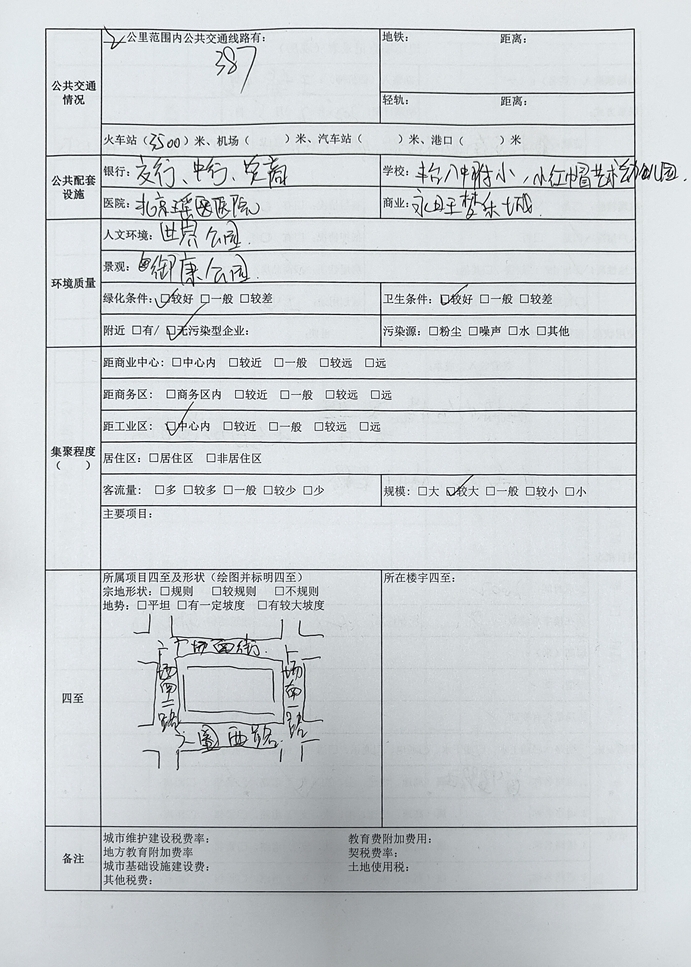 2公里范围内公共交通线路有：
387
地铁： 距离：
公共交通情况
轻轨： 距离：
火车站（3500）米、机场（ ）米、汽车站（ ）米、港口（ ）米
公共配套设施
银行：交行、中行、农商
学校：丰台八中附小，小红帽艺术幼儿园.
医院：北京瑶医医院
商业：永旺梦乐城.
环境质量
人文环境：世界公园.
景观：御康公园.
绿化条件：☑较好 □一般 □较差
卫生条件：☑较好 □一般 □较差
附近 □有/ ☑无污染型企业：
污染源：□粉尘 □噪声 □水 □其他
集聚程度（ ）
距商业中心：□中心内 □较近 □一般 □较远 □远
距商务区：□商务区内 □较近 □一般 □较远 □远
距工业区：☑中心内 □较近 □一般 □较远 □远
居住区：□居住区 □非居住区
客流量：□多 □较多 □一般 □较少 □少
规模：□大 ☑较大 □一般 □较小 □小
主要项目：
四至
所属项目四至及形状（绘图并标明四至）
宗地形状：□规则 □较规则 □不规则
地势：□平坦 □有一定坡度 □有较大坡度
所在楼宇四至：
西街.
路
路
西路
备注
城市维护建设税费率： 教育费附加费用：
地方教育附加费率 契税费率：
城市基础设施建设费： 土地使用税：
其他税费：